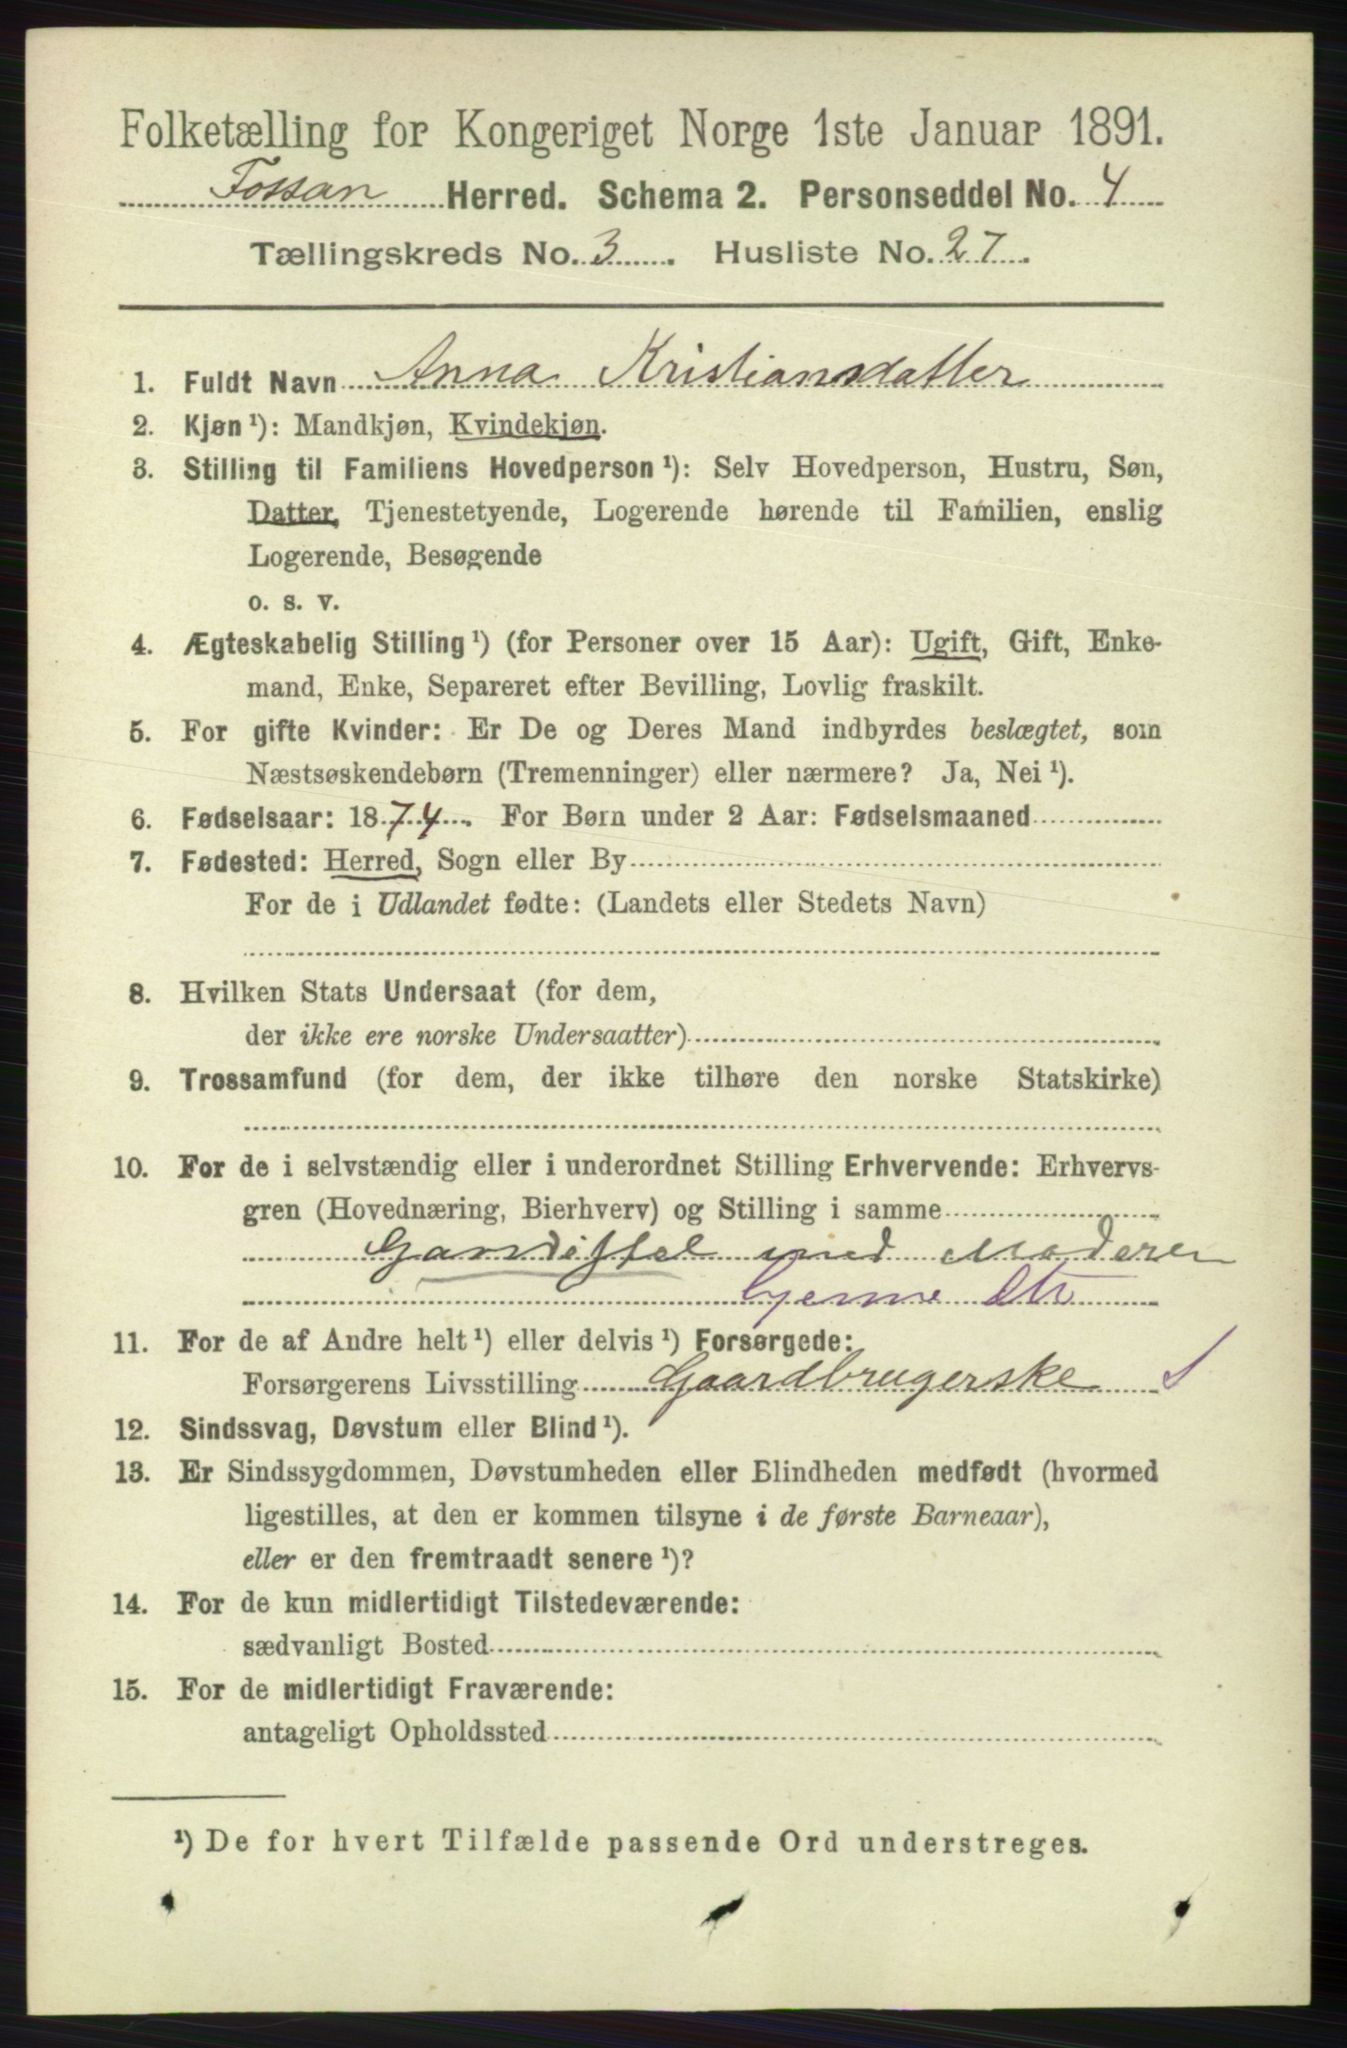 Folketælling for Kongeriget Norge 1ste Januar 1891.
Fossan Herred. Schema 2. Personseddel No. 4
Tællingskreds No. 3. Husliste No. 27.
1. Fuldt Navn Anna Kristiansdatter
2. Kjøn ¹): Mandkjøn, Kvindekjøn.
3. Stilling til Familiens Hovedperson ¹): Selv Hovedperson, Hustru, Søn,
Datter, Tjenestetyende, Logerende hørende til Familien, enslig
Logerende, Besøgende
o. s. v.
4. Ægteskabelig Stilling ¹) (for Personer over 15 Aar): Ugift, Gift, Enke-
mand, Enke, Separeret efter Bevilling, Lovlig fraskilt.
5. For gifte Kvinder: Er De og Deres Mand indbyrdes beslægtet, som
Næstsøskendebørn (Tremenninger) eller nærmere? Ja, Nei ¹).
6. Fødselsaar: 1874. For Børn under 2 Aar: Fødselsmaaned
7. Fødested: Herred, Sogn eller By
For de i Udlandet fødte: (Landets eller Stedets Navn)
8. Hvilken Stats Undersaat (for dem,
der ikke ere norske Undersaatter)
9. Trossamfund (for dem, der ikke tilhøre den norske Statskirke)
10. For de i selvstændig eller i underordnet Stilling Erhvervende: Erhvervs-
gren (Hovednæring, Bierhverv) og Stilling i samme
med Moderen
11. For de af Andre helt ¹) eller delvis ¹) Forsørgede:
Forsørgerens Livsstilling Gaardbrugerske
12. Sindssvag, Døvstum eller Blind ¹).
13. Er Sindssygdommen, Døvstumheden eller Blindheden medfødt (hvormed
ligestilles, at den er kommen tilsyne i de første Barneaar),
eller er den fremtraadt senere ¹)?
14. For de kun midlertidigt Tilstedeværende:
sædvanligt Bosted
15. For de midlertidigt Fraværende:
antageligt Opholdssted
¹) De for hvert Tilfælde passende Ord understreges.